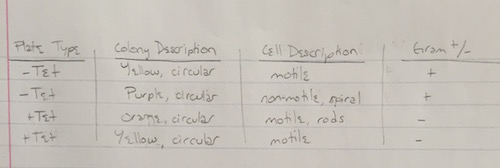 Plate Type Colony Description Cell Description Gram +/-
-Tet Yellow, circular motile +
-Tet Purple, circular non-motile, spiral +
+Tet Orange, circular motile, rods -
+Tet Yellow, circular motile -